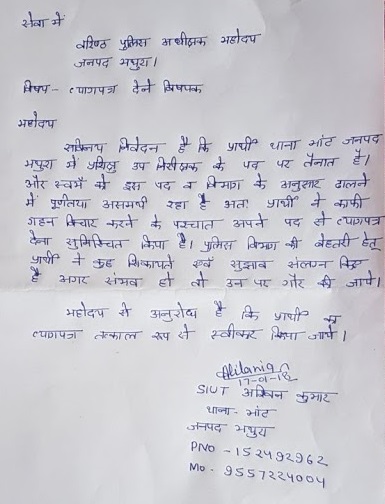 सेवा में
वरिष्ठ पुलिस अधीक्षक महोदय
जनपद मथुरा।
विषय - त्यागपत्र देने विषयक
महोदय
सविनय निवेदन है कि प्रार्थी थाना मांट जनपद
मथुरा में प्रशिक्षु उप निरीक्षक के पद पर तैनात है।
और स्वयं को इस पद व विभाग के अनुसार ढालने
में पूर्णतया असमर्थ रहा है अतः प्रार्थी ने काफी
गहन विचार करने के पश्चात अपने पद से त्यागपत्र
देना सुनिश्चित किया है। पुलिस विभाग की बेहतरी हेतु
प्रार्थी ने कुछ शिकायतें एवं सुझाव संलग्न किए
है अगर संभव हो तो उन पर गौर की जाये।
महोदय से अनुरोध है कि प्रार्थी का
त्यागपत्र तत्काल रूप से स्वीकार किया जाये।
17-01-18
SIUT कुमार
थाना - मांट
जनपद मथुरा
PNO - 152492962
Mo. 9557224004